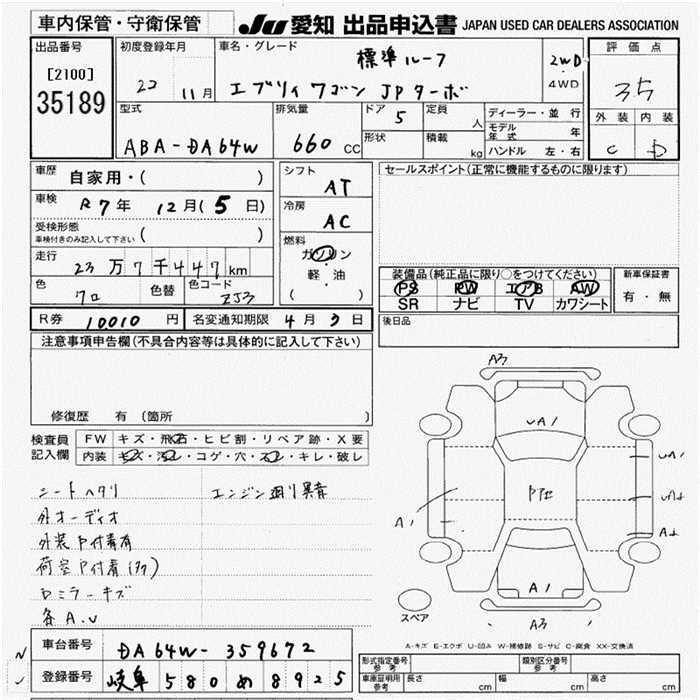 車内保管・守衛保管
JU 愛知 出品申込書 JAPAN USED CAR DEALERS ASSOCIATION
出品番号
[2100]
35189
初度登録年月
22 11月
車名・グレード
標準ルーフ
エブリィワゴン JPターボ
2WD
4WD
評価点
35
外装 内装
C D
型式
ABA-DA64W
排気量
660 CC
ドア
5
形状
定員
人
積載
kg
ディーラー・並行
モデル年式 年
ハンドル 左・右
車歴
自家用・( )
車検
R7年 12月(5日)
受検形態
車検付きのみ記入して下さい ( )
走行
23万7千447km
色
クロ
色替
色コード
ZJ3
シフト
AT
冷房
AC
燃料
ガソリン
・
軽油
( )
セールスポイント(正常に機能するものに限ります)
装備品(純正品に限り○をつけてください)
PS PW エアB AW
SR ナビ TV カワシート
新車保証書
有・無
R券 10010 円
名変通知期限 4月3日
後日品
注意事項申告欄(不具合内容等は具体的に記入して下さい)
修復歴 有 (箇所 )
検査員記入欄
FW キズ・飛石・ヒビ割・リペア跡・X要
内装 キズ・汚レ・コゲ・穴・スレ・キレ・破レ
シートヘタリ エンジン廻り異音
外オーディオ
外装P付着有
荷室P付着(タク)
Dミラーキズ
各A.U
A3
UA1
A1
UA1
A1
A1
A3
スペア
A-キズ E-エクボ U-凹み W-補修跡 S-サビ C-腐食 XX-交換済
車台番号 DA64W-359672
登録番号 岐阜 580 め 8925
型式指定番号 参考
類別区分番号 参考
車庫証明用 参考 長さ cm 幅 cm 高さ cm